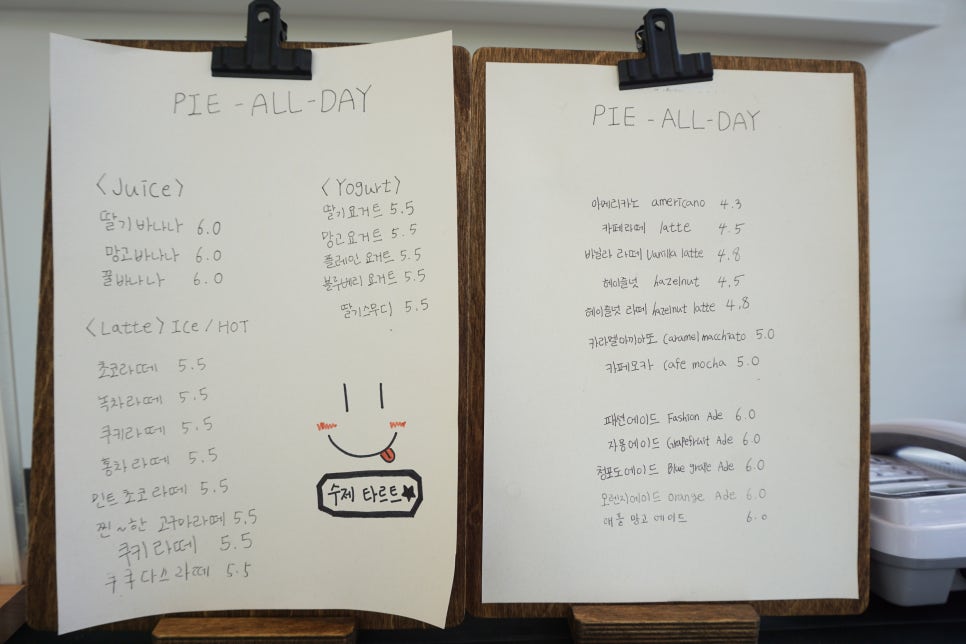 PIE - ALL - DAY
<Juice>
딸기바나나 6.0
망고바나나 6.0
꿀바나나 6.0
<Yogurt>
딸기요거트 5.5
망고요거트 5.5
플레인 요거트 5.5
블루베리 요거트 5.5
딸기스무디 5.5
<Latte> ICe / HOT
초코라떼 5.5
녹차라떼 5.5
쿠키라떼 5.5
홍차라떼 5.5
민트초코라떼 5.5
찐~한 고구마라떼 5.5
쿠키라떼 5.5
쿠쿠다스라떼 5.5
수제 타르트★
PIE - ALL - DAY
아메리카노 americano 4.3
카페라떼 latte 4.5
바닐라 라떼 Vanilla latte 4.8
헤이즐넛 hazelnut 4.5
헤이즐넛 라떼 hazelnut latte 4.8
카라멜마끼아또 Caramel macchiato 5.0
카페모카 cafe mocha 5.0
패션에이드 Fashion Ade 6.0
자몽에이드 Grapefruit Ade 6.0
청포도에이드 Blue grape Ade 6.0
오렌지에이드 Orange Ade 6.0
애플 망고 에이드 6.0